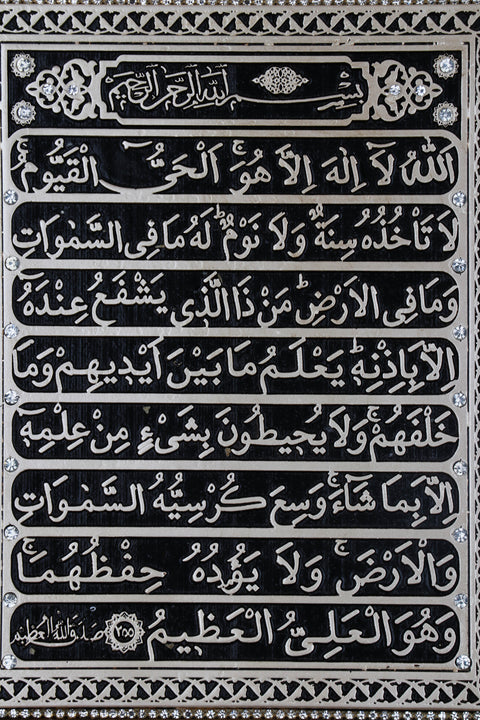 بِسْمِ اللهِ الرَّحْمٰنِ الرَّحِيمِ
اَللهُ لَآ اِلٰهَ اِلَّا هُوَۚ اَلْحَيُّ الْقَيُّومُۚ
لَا تَأْخُذُهُ سِنَةٌ وَلَا نَوْمٌۜ لَهُ مَا فِي السَّمٰوَاتِ
وَمَا فِي الْاَرْضِۜ مَنْ ذَا الَّذِي يَشْفَعُ عِنْدَهُٓ
اِلَّا بِاِذْنِهِۜ يَعْلَمُ مَا بَيْنَ اَيْدِيهِمْ وَمَا
خَلْفَهُمْۚ وَلَا يُحِيطُونَ بِشَيْءٍ مِنْ عِلْمِهِٓ
اِلَّا بِمَا شَآءَۚ وَسِعَ كُرْسِيُّهُ السَّمٰوَاتِ
وَالْاَرْضَۚ وَلَا يَؤُدُهُ حِفْظُهُمَاۚ
وَهُوَ الْعَلِيُّ الْعَظِيمُ ﴿٢٥٥﴾ صدق الله العظيم